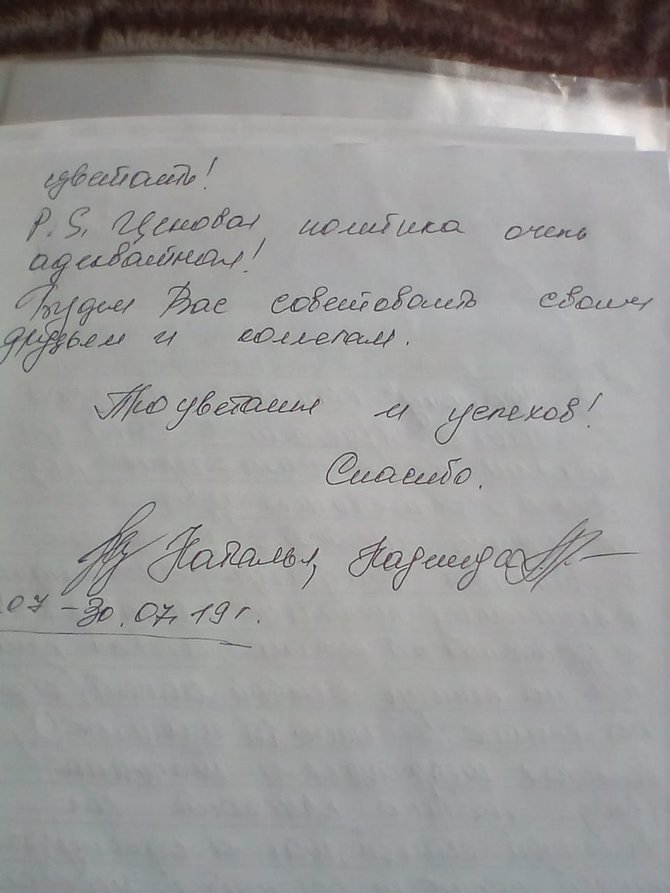 цветать!
P.S. Ценовая политика очень
адекватная!
Будем Вас советовать своим
друзьям и коллегам.
Процветания и успехов!
Спасибо.
Наталья, Надежда
07 - 30.07.19г.